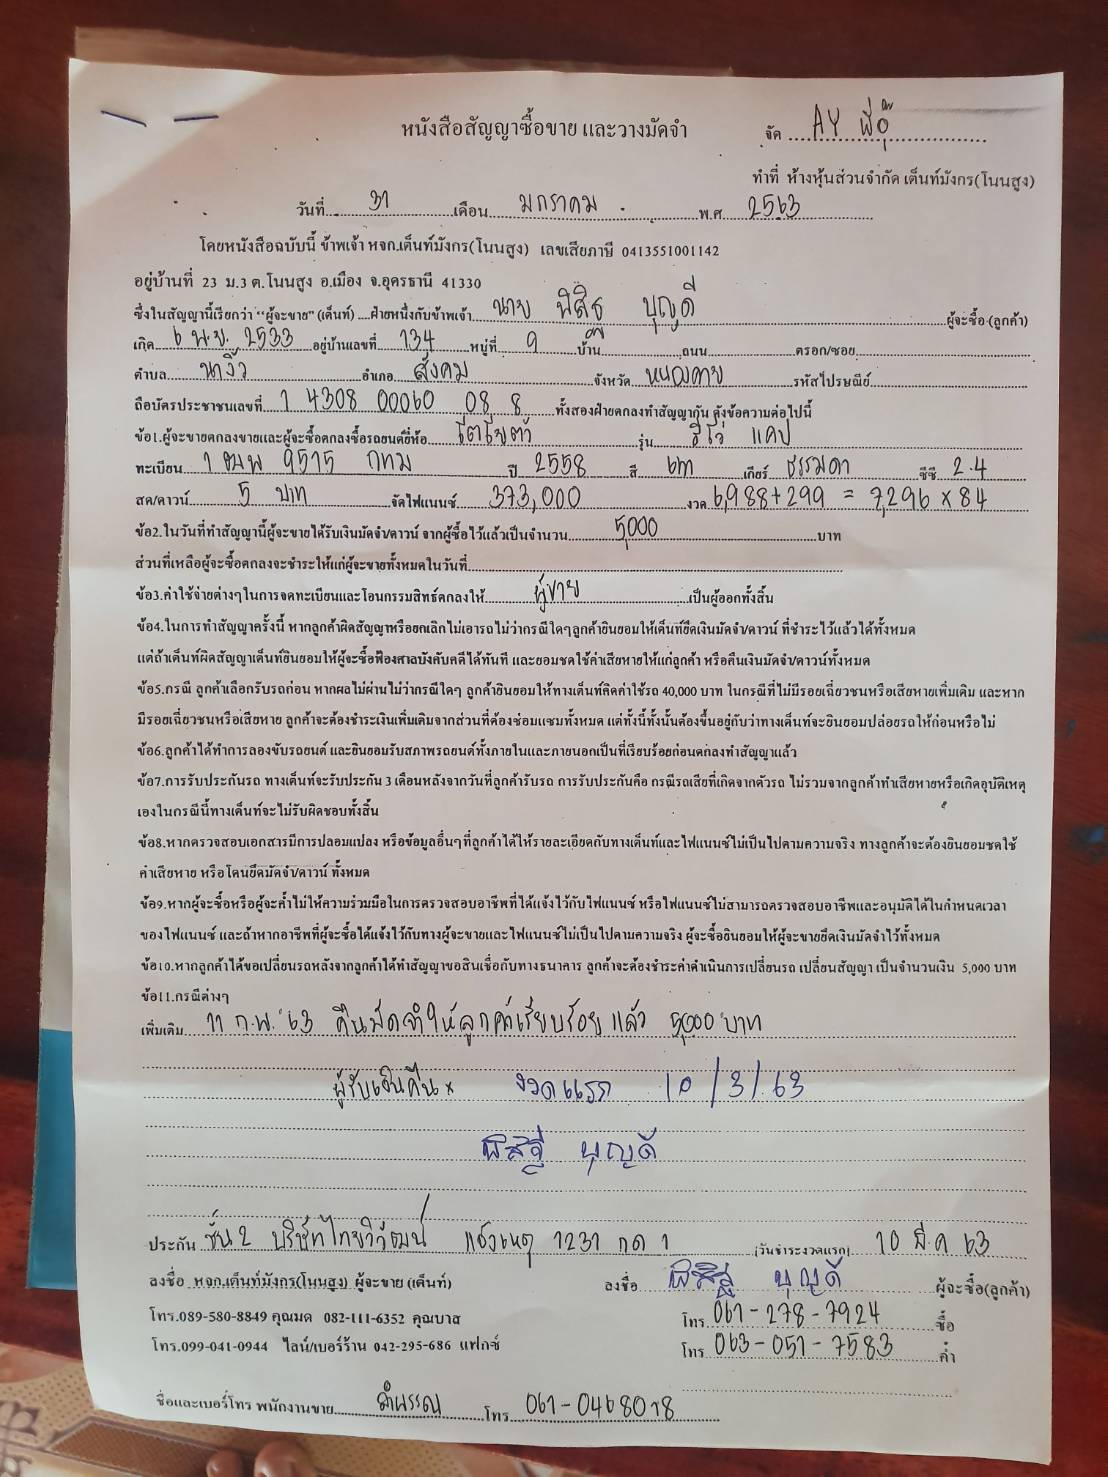 หนังสือสัญญาซื้อขาย และวางมัดจำ
จัด AY
ทำที่ ห้างหุ้นส่วนจำกัด เต็นท์มังกร(โนนสูง)
วันที่ 31 เดือน มกราคม พ.ศ 2563
โดยหนังสือฉบับนี้ ข้าพเจ้า หจก.เต็นท์มังกร(โนนสูง) เลขเสียภาษี 0413551001142
อยู่บ้านที่ 23 ม.3 ต.โนนสูง อ.เมือง จ.อุดรธานี 41330
ซึ่งในสัญญานี้เรียกว่า "ผู้จะขาย" (เต็นท์) ฝ่ายหนึ่งกับข้าพเจ้า นาย พิสิฐ บุญดี ผู้จะซื้อ (ลูกค้า)
เกิด 6 พ.ย. 2533 อยู่บ้านเลขที่ 134 หมู่ที่ 9 บ้าน ถนน ตรอก/ซอย
ตำบล นางิ้ว อำเภอ สังคม จังหวัด หนองคาย รหัสไปรษณีย์
ถือบัตรประชาชนเลขที่ 1 4308 00060 08 8 ทั้งสองฝ่ายตกลงทำสัญญากัน ดังข้อความต่อไปนี้
ข้อ1.ผู้จะขายตกลงขายและผู้จะซื้อตกลงซื้อรถยนต์ยี่ห้อ โตโยต้า รุ่น รีโว่ แคป
ทะเบียน 1 ฒพ 9515 กทม ปี 2558 สี เทา เกียร์ ธรรมดา ซีซี 2.4
สด/ดาวน์ 5 บาท จัดไฟแนนซ์ 373,000 งวด 6,988+299 = 7,296 x 84
ข้อ2.ในวันที่ทำสัญญานี้ผู้จะขายได้รับเงินมัดจำ/ดาวน์ จากผู้ซื้อไว้แล้วเป็นจำนวน 5,000 บาท
ส่วนที่เหลือผู้จะซื้อตกลงจะชำระให้แก่ผู้จะขายทั้งหมดในวันที่
ข้อ3.ค่าใช้จ่ายต่างๆในการจดทะเบียนและโอนกรรมสิทธ์ตกลงให้ ผู้ขาย เป็นผู้ออกทั้งสิ้น
ข้อ4.ในการทำสัญญาครั้งนี้ หากลูกค้าผิดสัญญาหรือยกเลิกไม่เอารถไม่ว่ากรณีใดๆลูกค้ายินยอมให้เต็นท์ยึดเงินมัดจำ/ดาวน์ ที่ชำระไว้แล้วได้ทั้งหมด
แต่ถ้าเต็นท์ผิดสัญญาเต็นท์ยินยอมให้ผู้จะซื้อฟ้องศาลบังคับคดีได้ทันที และยอมชดใช้ค่าเสียหายให้แก่ลูกค้า หรือคืนเงินมัดจำ/ดาวน์ทั้งหมด
ข้อ5.กรณี ลูกค้าเลือกรับรถก่อน หากผลไม่ผ่านไม่ว่ากรณีใดๆ ลูกค้ายินยอมให้ทางเต็นท์คิดค่าใช้รถ 40,000 บาท ในกรณีที่ไม่มีรอยเฉี่ยวชนหรือเสียหายเพิ่มเติม และหาก
มีรอยเฉี่ยวชนหรือเสียหาย ลูกค้าจะต้องชำระเงินเพิ่มเติมจากส่วนที่ต้องซ่อมแซมทั้งหมด แต่ทั้งนี้ทั้งนั้นต้องขึ้นอยู่กับว่าทางเต็นท์จะยินยอมปล่อยรถให้ก่อนหรือไม่
ข้อ6.ลูกค้าได้ทำการลองขับรถยนต์ และยินยอมรับสภาพรถยนต์ทั้งภายในและภายนอกเป็นที่เรียบร้อยก่อนตกลงทำสัญญาแล้ว
ข้อ7.การรับประกันรถ ทางเต็นท์จะรับประกัน 3 เดือนหลังจากวันที่ลูกค้ารับรถ การรับประกันคือ กรณีรถเสียที่เกิดจากตัวรถ ไม่รวมจากลูกค้าทำเสียหายหรือเกิดอุบัติเหตุ
เองในกรณีนี้ทางเต็นท์จะไม่รับผิดชอบทั้งสิ้น
ข้อ8.หากตรวจสอบเอกสารมีการปลอมแปลง หรือข้อมูลอื่นๆที่ลูกค้าได้ให้รายละเอียดกับทางเต็นท์และไฟแนนซ์ไม่เป็นไปตามความจริง ทางลูกค้าจะต้องยินยอมชดใช้
ค่าเสียหาย หรือโดนยึดมัดจำ/ดาวน์ ทั้งหมด
ข้อ9.หากผู้จะซื้อหรือผู้จะค้ำไม่ให้ความร่วมมือในการตรวจสอบอาชีพที่ได้แจ้งไว้กับไฟแนนซ์ หรือไฟแนนซ์ไม่สามารถตรวจสอบอาชีพและอนุมัติได้ในกำหนดเวลา
ของไฟแนนซ์ และถ้าหากอาชีพที่ผู้จะซื้อได้แจ้งไว้กับทางผู้จะขายและไฟแนนซ์ไม่เป็นไปตามความจริง ผู้จะซื้อยินยอมให้ผู้จะขายยึดเงินมัดจำไว้ทั้งหมด
ข้อ10.หากลูกค้าได้ขอเปลี่ยนรถหลังจากลูกค้าได้ทำสัญญาขอสินเชื่อกับทางธนาคาร ลูกค้าจะต้องชำระค่าดำเนินการเปลี่ยนรถ เปลี่ยนสัญญา เป็นจำนวนเงิน 5,000 บาท
ข้อ11.กรณีต่างๆ
เพิ่มเติม 11 ก.พ. 63 คืนมัดจำให้ลูกค้าเรียบร้อยแล้ว 5,000 บาท
ผู้รับเงินคืน x งวดแรก 10/3/63
พิสิฐ บุญดี
ประกัน ชั้น2 บริษัทไทยวิวัฒน์ แจ้งเหตุ 1231 กด 1 (วันชำระงวดแรก) 10 มี.ค 63
ลงชื่อ หจก.เต็นท์มังกร(โนนสูง) ผู้จะขาย (เต็นท์) ลงชื่อ พิสิฐ บุญดี ผู้จะซื้อ(ลูกค้า)
โทร.089-580-8849 คุณมด 082-111-6352 คุณบาส โทร 061-278-7924 ซื้อ
โทร.099-041-0944 ไลน์/เบอร์ร้าน 042-295-686 แฟกซ์ โทร 063-051-7583 ค้ำ
ชื่อและเบอร์โทร พนักงานขาย โทร 061-0468018